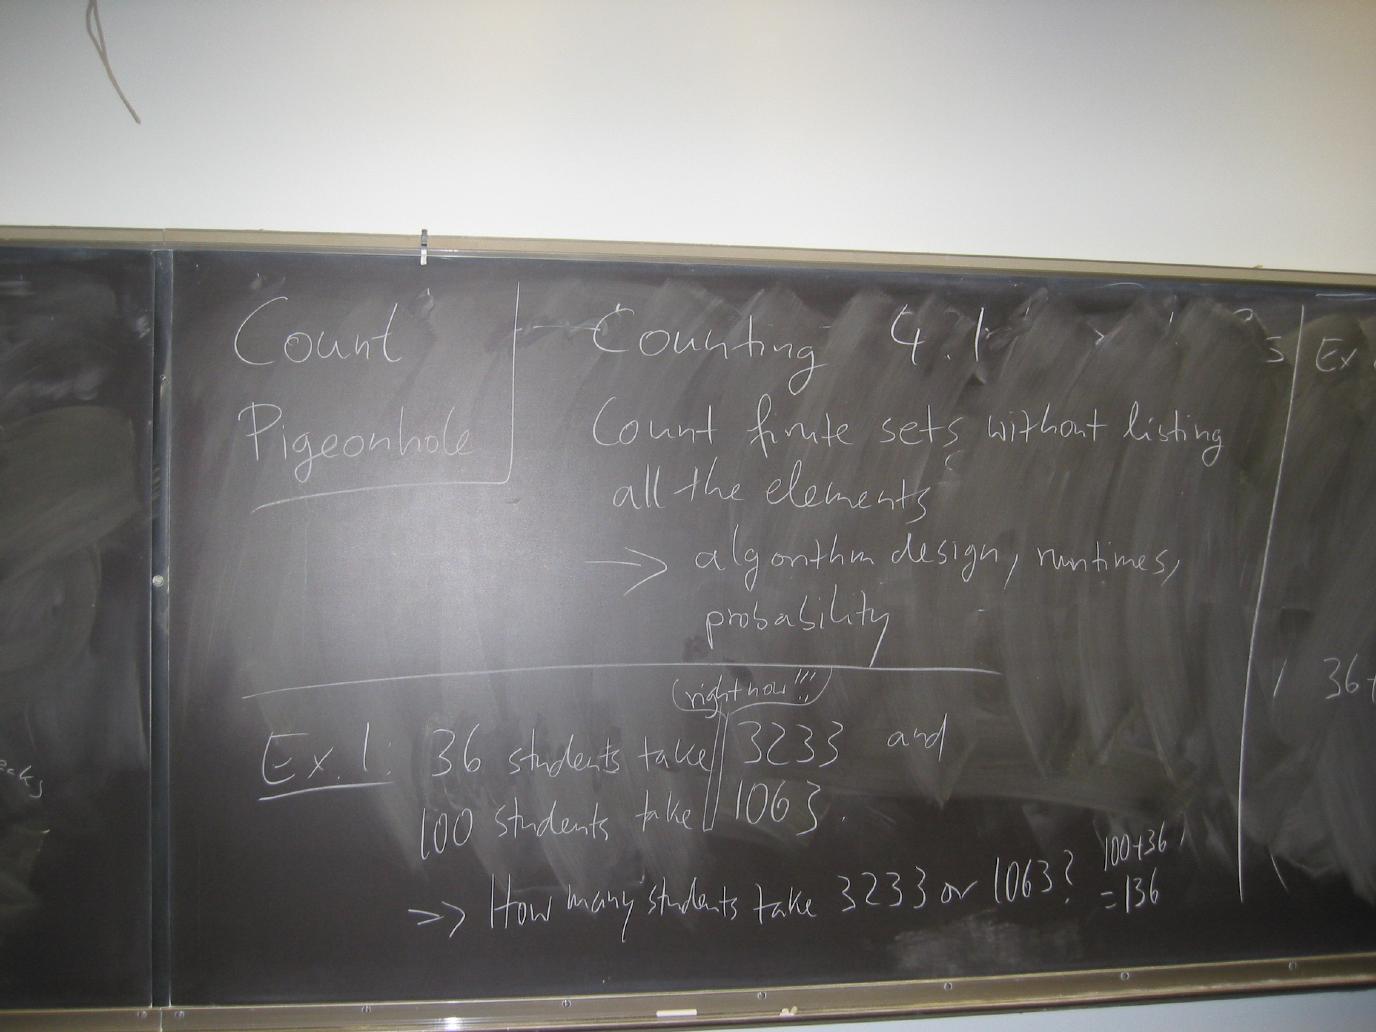 Count
Pigeonhole
Counting 4.1
Count finite sets without listing
all the elements
→ algorithm design, runtimes,
probability
(right now!!!)
Ex. 1: 36 students take 3233 and
100 students take 1063.
=> How many students take 3233 or 1063? 100+36
=136
Ex
36+